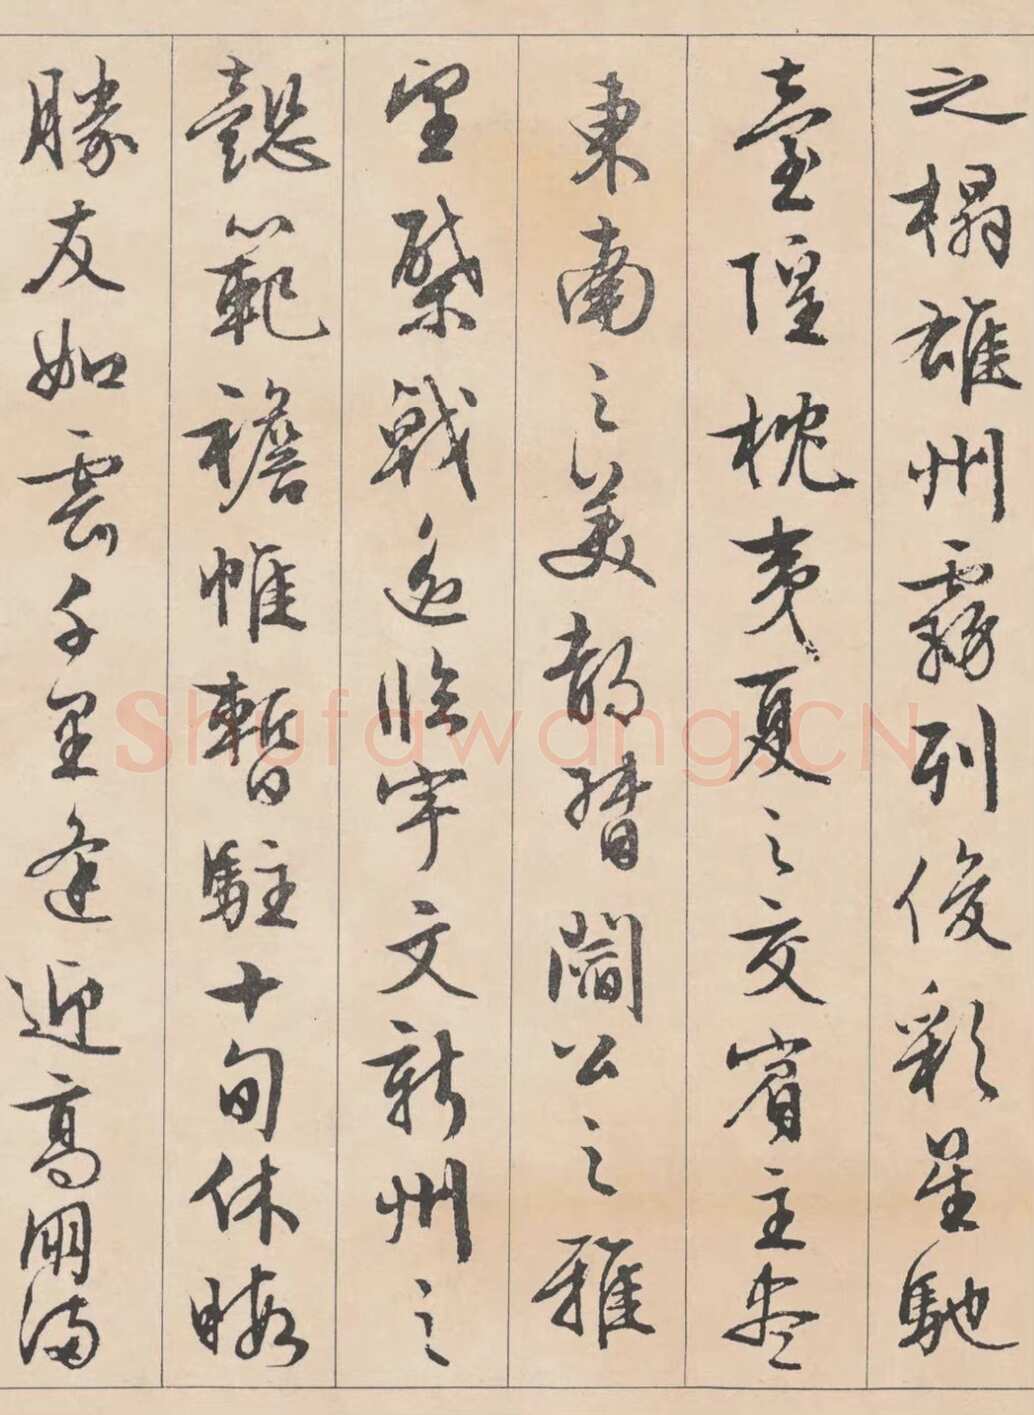 之榻雄州霧列俊彩星馳
臺隍枕夷夏之交賓主盡
東南之美都督閻公之雅
望棨戟遥臨宇文新州之
懿範襜帷暫駐十旬休暇
勝友如雲千里逢迎高朋滿
Shufawang.CN